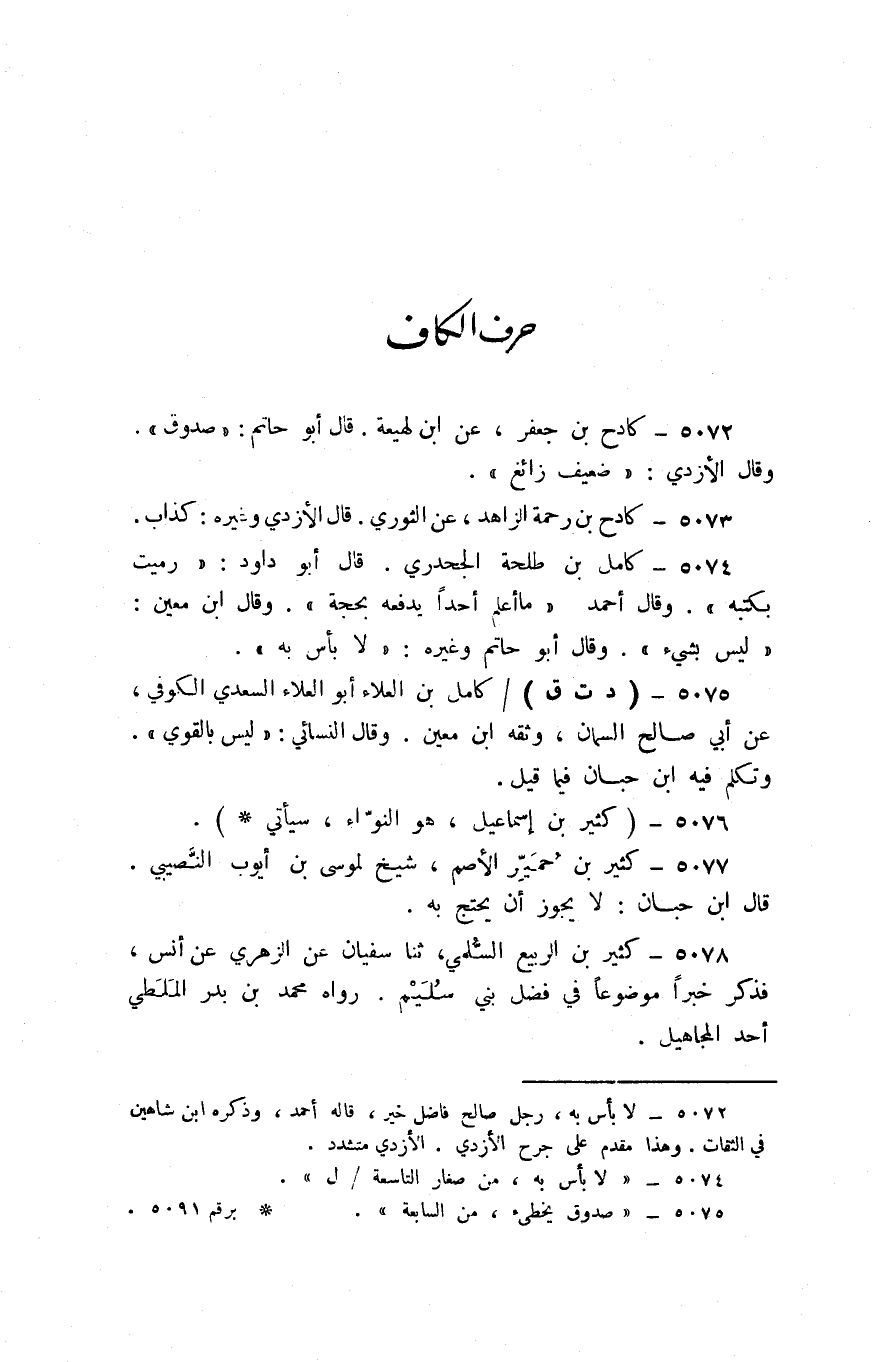 حرف الكاف
٥٠٧٢ – كادح بن جعفر ، عن ابن لهيعة . قال أبو حاتم : « صدوق » .
وقال الأزدي : « ضعيف زائغ » .
٥٠٧٣ – كادح بن رحمة الزاهد ، عن الثوري . قال الأزدي وغيره : كذاب .
٥٠٧٤ – كامل بن طلحة الجحدري . قال أبو داود : « رميت
بكتبه » . وقال أحمد « ماأعلم أحداً يدفعه بحجة » . وقال ابن معين :
« ليس بشيء » . وقال أبو حاتم وغيره : « لا بأس به » .
٥٠٧٥ – ( د ت ق ) / كامل بن العلاء أبو العلاء السعدي الكوفي ،
عن أبي صالح السمان ، وثقه ابن معين . وقال النسائي : « ليس بالقوي » .
وتكلم فيه ابن حبان فيما قيل .
٥٠٧٦ – ( كثير بن إسماعيل ، هو النوّاء ، سيأتي * ) .
٥٠٧٧ – كثير بن حُمَيِّر الأصم ، شيخ لموسى بن أيوب النَّصيبي .
قال ابن حبان : لا يجوز أن يحتج به .
٥٠٧٨ – كثير بن الربيع السُّلمي، ثنا سفيان عن الزهري عن أنس ،
فذكر خبراً موضوعاً في فضل بني سُلَيْم . رواه محمد بن بدر المَلَطي
أحد المجاهيل .
٥٠٧٢ – لا بأس به ، رجل صالح فاضل خير ، قاله أحمد ، وذكره ابن شاهين
في الثقات . وهذا مقدم على جرح الأزدي . الأزدي متشدد .
٥٠٧٤ – « لا بأس به ، من صغار التاسعة / ل » .
٥٠٧٥ – « صدوق يخطىء ، من السابعة » . * برقم ٥٠٩١ .